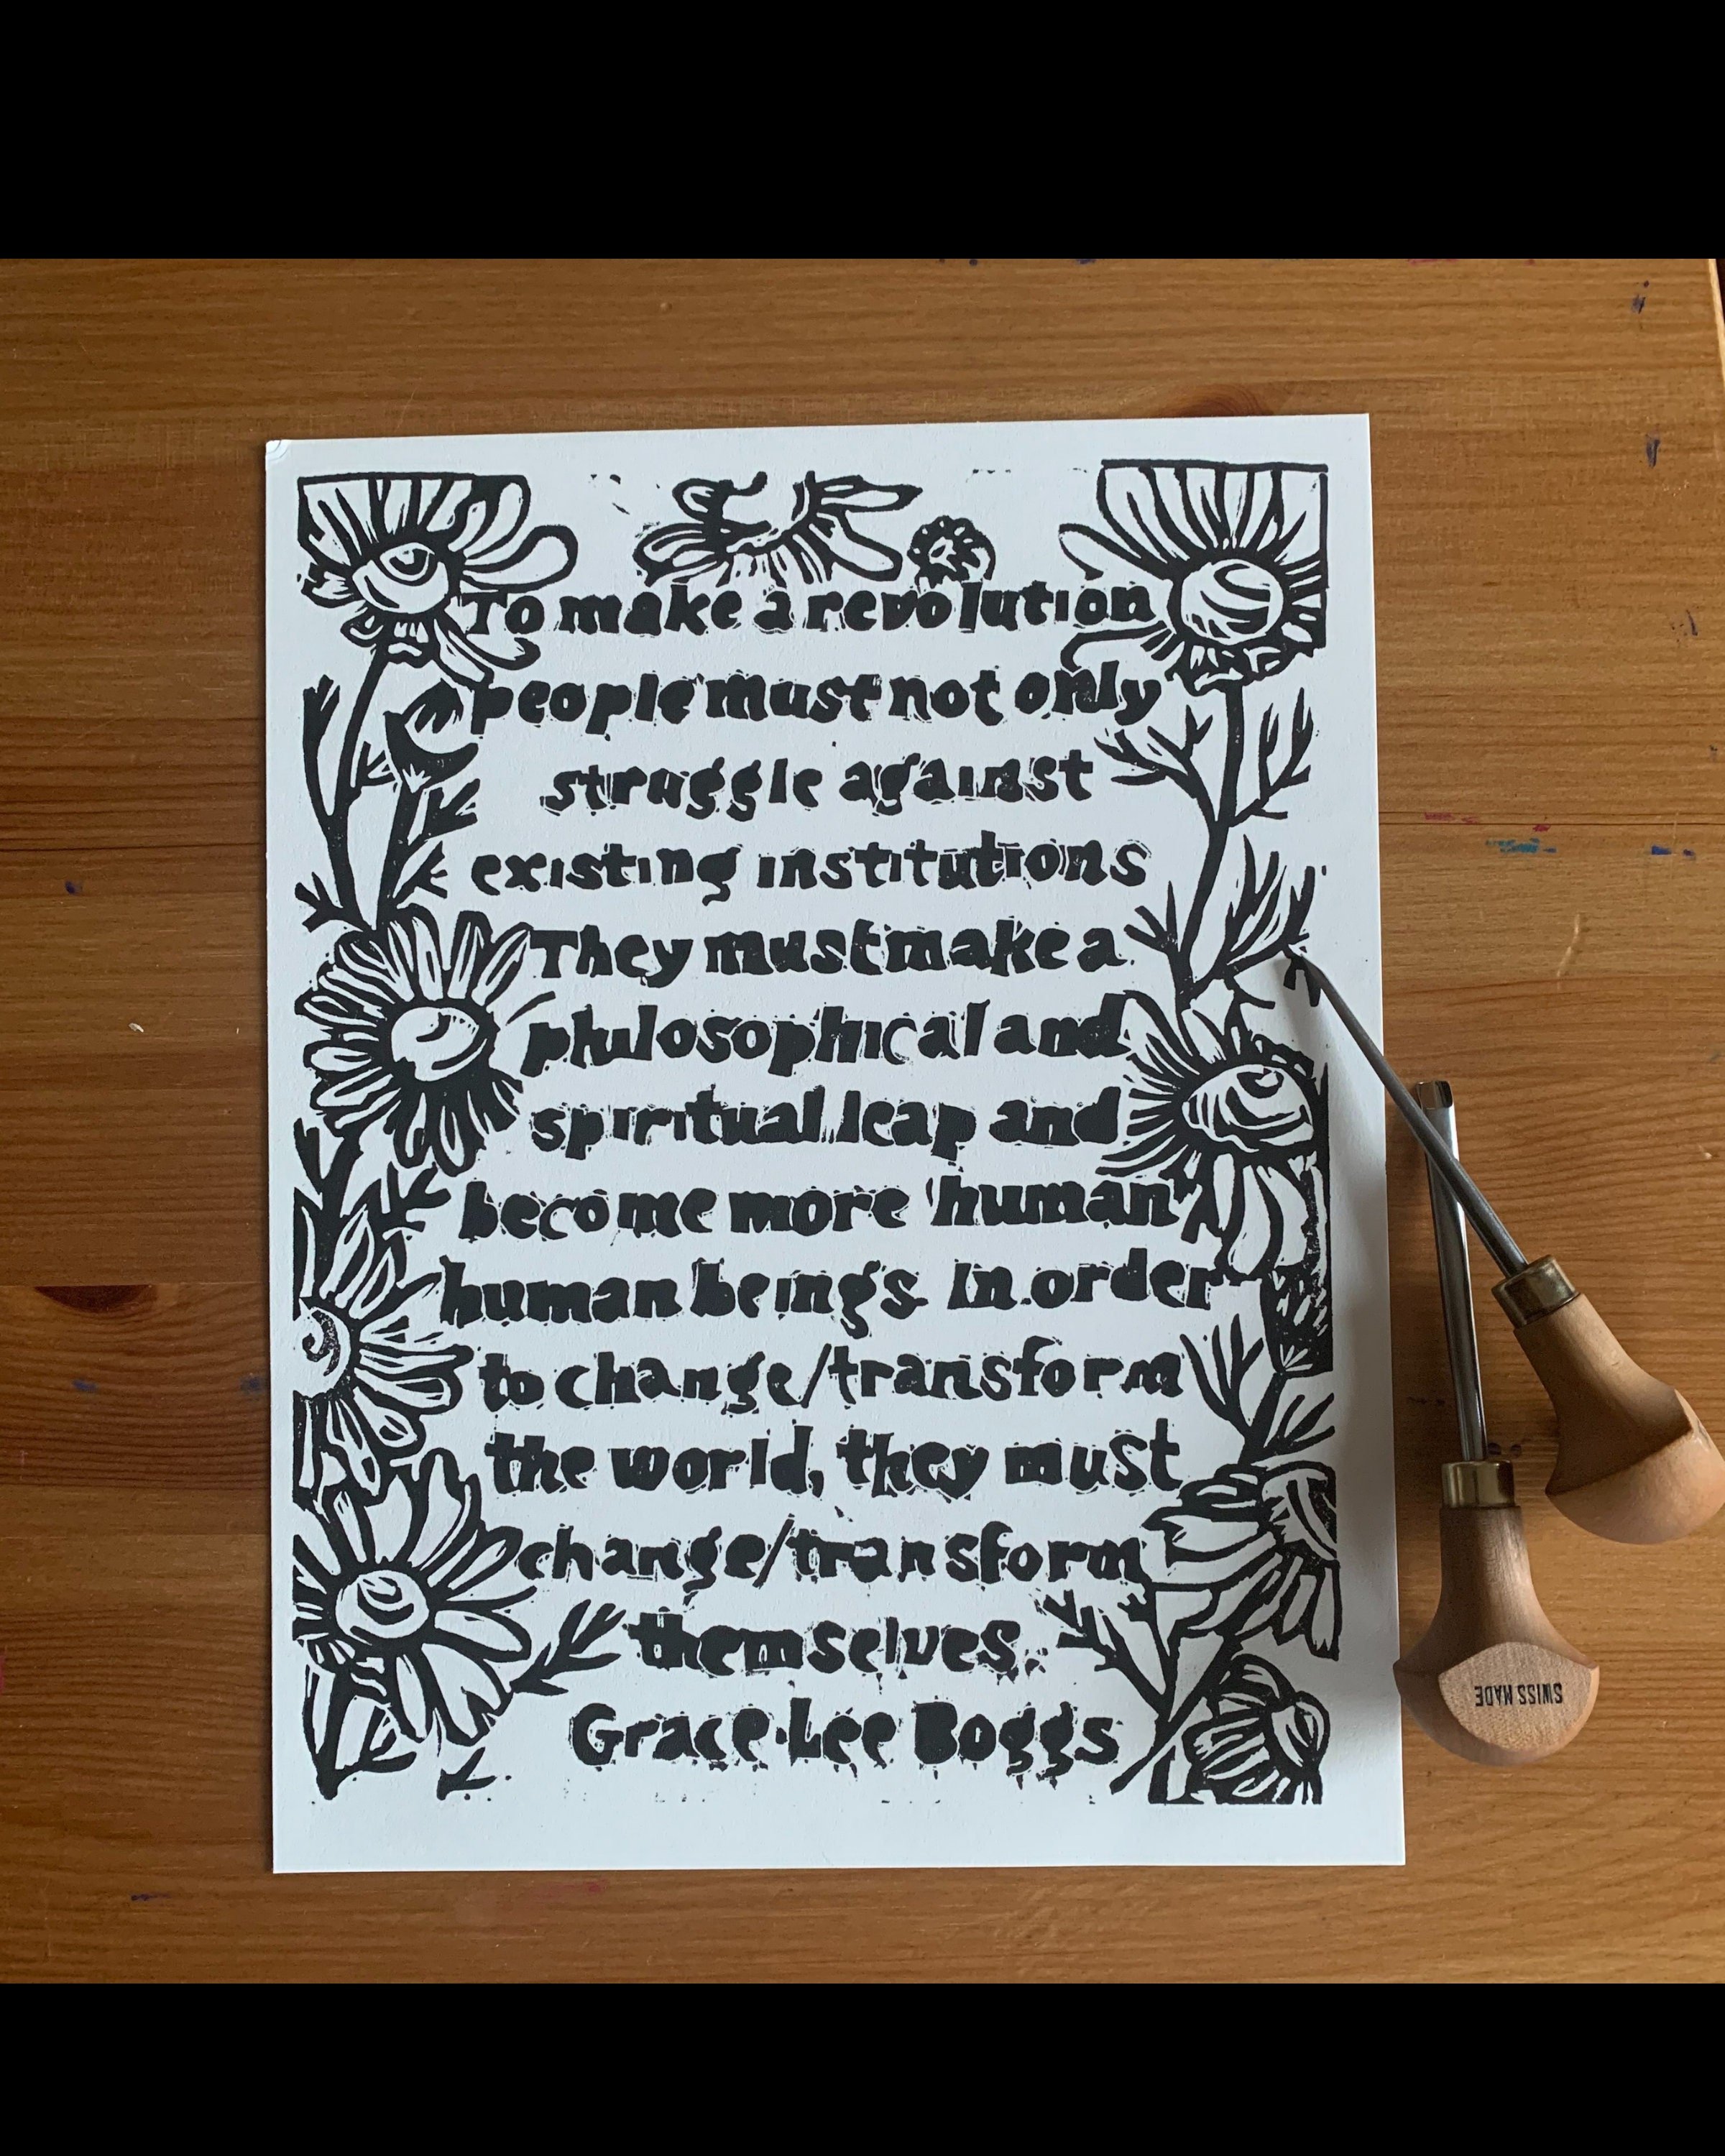 To make a revolution
people must not only
struggle against
existing institutions
They must make a
philosophical and
spiritual leap and
become more 'human'
human beings. In order
to change/transform
the world, they must
change/transform
themselves.
Grace Lee Boggs
SWISS MADE